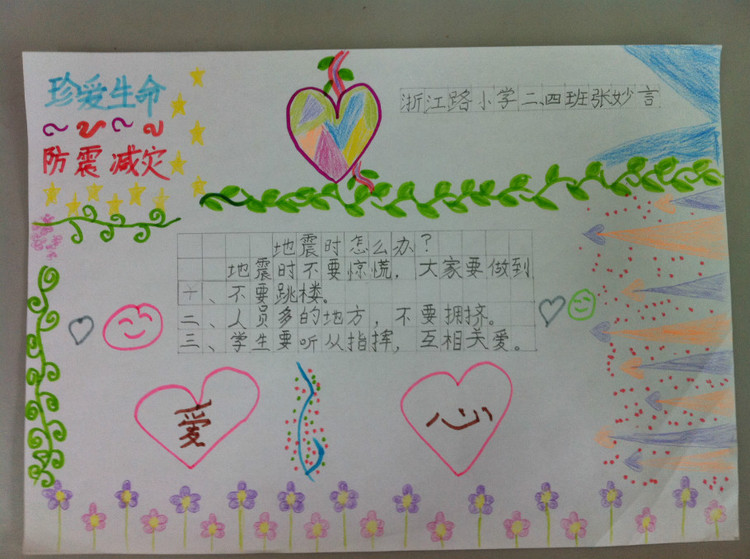 珍爱生命
防震减灾
浙江路小学二、四班张妙言
地震时怎么办?
地震时不要惊慌,大家要做到
一、不要跳楼。
二、人员多的地方,不要拥挤。
三、学生要听从指挥,互相关爱。
爱
心